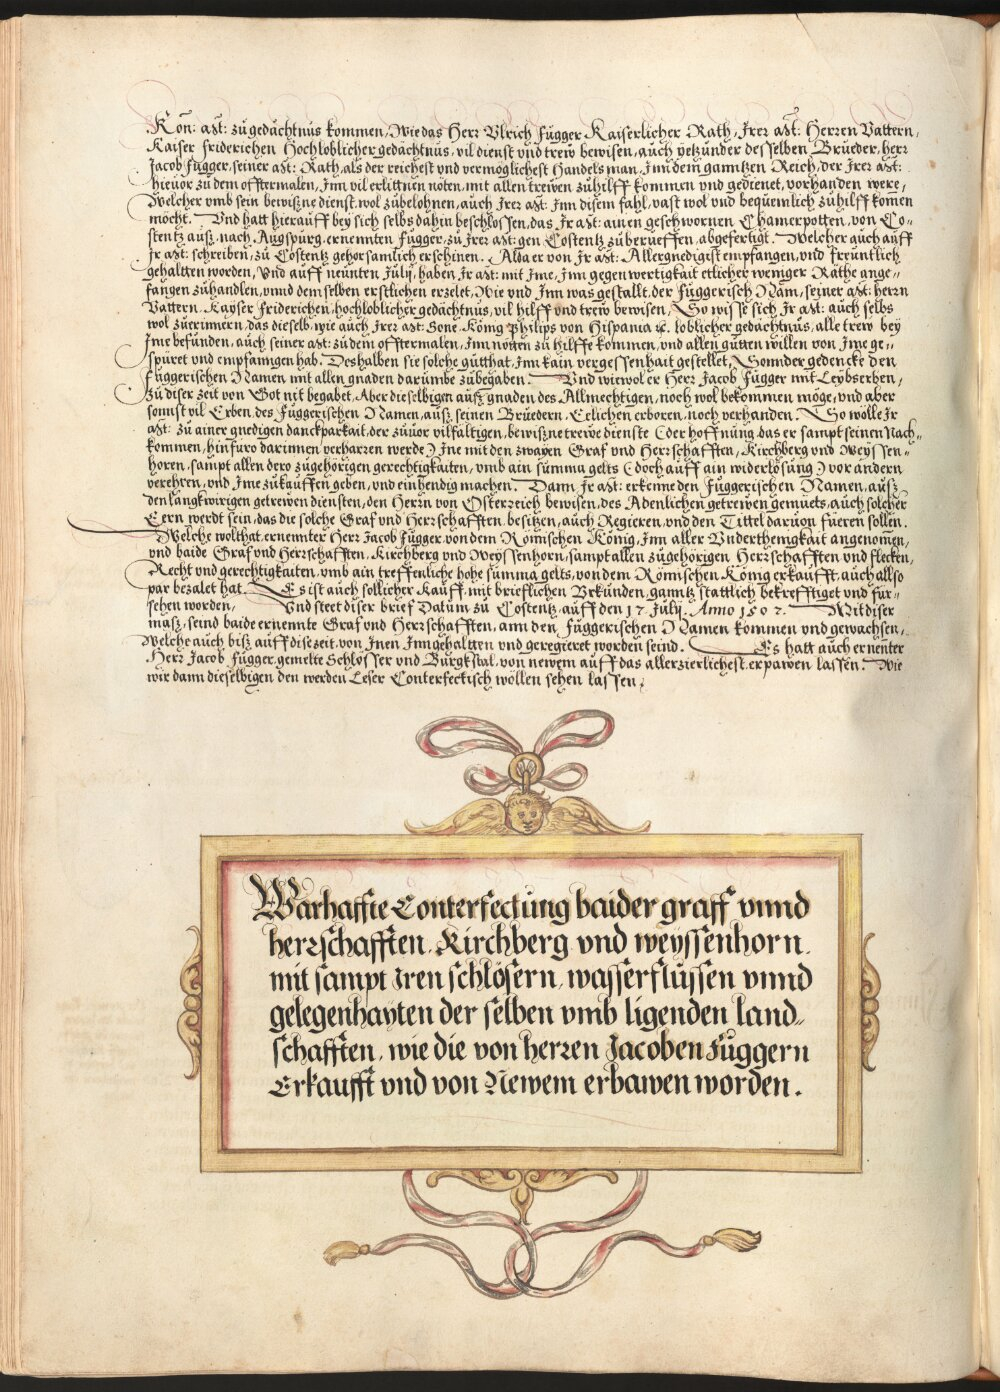 Kön: Mt: zů gedächtnus kommen, Wie das Herr Vlrich Fugger Kaiserlicher Rath, Irer Mt: Herren Vattern,
Kaiser Friderichen Hochloblicher gedächtnus, vil dienst vnd trew bewisen, auch yetzunder desselben Brüeder, herr
Jacob Fugger, seiner Mt: Rath, als der reichest vnd vermöglichest Handelsman, Inn dem ganntzen Reich, der Irer Mt:
hieuor zu dem offtermalen, Inn vil erlittnen nöten, mit allen trewen zuhilff kommen vnd gedienet, vorhanden were,
Welcher vmb sein bewißne dienst, wol zubelohnen, auch Irer Mt: Inn disem fahl, vast wol vnd bequemlich zuhilff komen
möcht. Vnd hatt hierauff bey sich selbs dahin beschlossen, das Ir Mt: ainen geschwornen Chamerpotten, von Co-
stentz auß, nach Augspurg, ernennten Fugger, zu Irer Mt: gen Costentz zuberueffen, abgefertigt. Welcher auch auff
Ir Mt: schreiben, zu Costentz gehorsamlich erschinen. Alda er von Ir Mt: Allergnedigist empfangen, vnd freuntlich
gehaltten worden, Vnd auff neunten Julij, haben Ir Mt: mit Ime, Inn gegenwertigkait etlicher weniger Räthe ange-
fangen zuhandlen, vnnd demselben erstlichen erzelet, Wie vnd Inn was gestallt, der Fuggerisch Nam, seiner Mt: herrn
Vattern, Kayser Friderichen, hochloblicher gedächtnus, vil hilff vnd trew bewisen, So wisse sich Ir Mt: auch selbs
wol zuerinnern, das dieselb, wie auch Irer Mt: Sone, König Philips von Hispania ꝛc. loblicher gedächtnus, alle trew bey
Ime befunden, auch seiner Mt: zu dem offtermalen, Inn nötten zu hilffe kommen, vnd allen gutten willen von Ime ge-
spüret vnd empfanngen hab. Deshalben sie solche gutthat, Inn kain vergessenhait gestellet, Sonnder gedencke den
Fuggerischen Namen mit allen gnaden darumbe zubegaben. Vnd wiewol er Herr Jacob Fugger mit Leybserben,
zu diser zeit von Got nit begabet, Aber dieselbigen auß gnaden des Allmechtigen, noch wol bekommen möge, vnd aber
sonnst vil Erben des Fuggerischen Namen, auß seinen Brüedern, Eelichen erboren, noch verhanden. So wölle Ir
Mt: zu ainer gnedigen danckparkait, der zuuor vilfältigen, bewißne trewe dienste (der hoffnung das er sampt seinen Nach-
kommen, hinfuro darinnen verharren werde) Ime mit den zwayen Graf vnd Herrschafften, Kirchberg vnd Weyssen-
horen, sampt allen dero zugehörigen gerechtigkaiten, vmb ain summa gelts (doch auff ain widerlösung) vor andern
verehren, vnd Ime zukauffen geben, vnd einhendig machen. Dann Ir Mt: erkenne den Fuggerischen Namen, auß
den langkwirigen getrewen diensten, den Herrn von Osterreich bewisen, des Adenlichen getrewen gemuets, auch solcher
Eern werdt sein, das die solche Graf vnd Herrschafften, besitzen, auch Regieren, vnd den Tittel daruon fueren sollen.
Welche wolthat, ernennter Herr Jacob Fugger, von dem Römischen König, Inn aller Vnderthenigkait angenomen,
vnd baide Graf vnd Herrschafften, Kirchberg vnd Weyssenhorn, sampt allen zugehörigen Herrschafften vnd flecken,
Recht vnd gerechtigkaiten, vmb ain treffenliche hohe summa gelts, von dem Römischen König erkaufft, auch allso
par bezalet hat. Es ist auch sollicher Kauff, mit brieflichen Vrkünden, ganntz stattlich bekrefftiget vnd für-
sehen worden, Vnd steet diser brief Datum zu Costentz auff den 17 July. Anno 1507. Mit diser
mass, seind baide ernennte Graf vnd Herrschafften, ann den Fuggerischen Namen kommen vnd gewachsen,
Welche auch biß auff dise zeit, von Inen Inngehaltten vnd geregieret worden seind. Es hatt auch ernenter
Herr Jacob Fugger, gemelte Schlösser vnd Burgkstal, von newem auff das allerzierlichest, erpawen lassen. Wie
wir dann dieselbigen den werden Leser Conterfectisch wöllen sehen lassen.
Warhaffte Conterfectung baider graff vnnd
herrschafften, Kirchberg vnd weyssenhorn,
mit sampt Iren schlösern, wasserflüssen vnnd
gelegenhayten der selben vmb ligenden land-
schafften, wie die von herren Jacoben Fuggern
Erkaufft vnd von Newem erbawen worden.